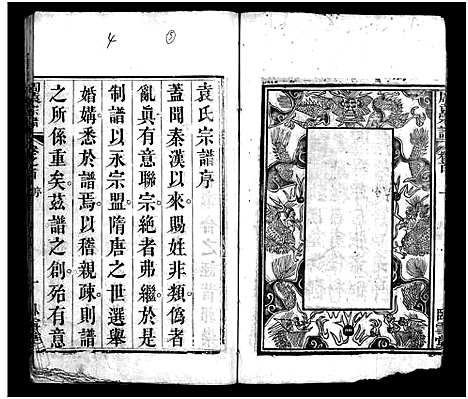 4
5
袁氏宗譜序
蓋聞秦漢以來賜姓非類僞者
亂真有意聯宗絶者弗繼於是
制譜以永宗盟隋唐之世選舉
婚媾悉於譜焉以稽親疎則譜
之所係重矣茲譜之創殆有意